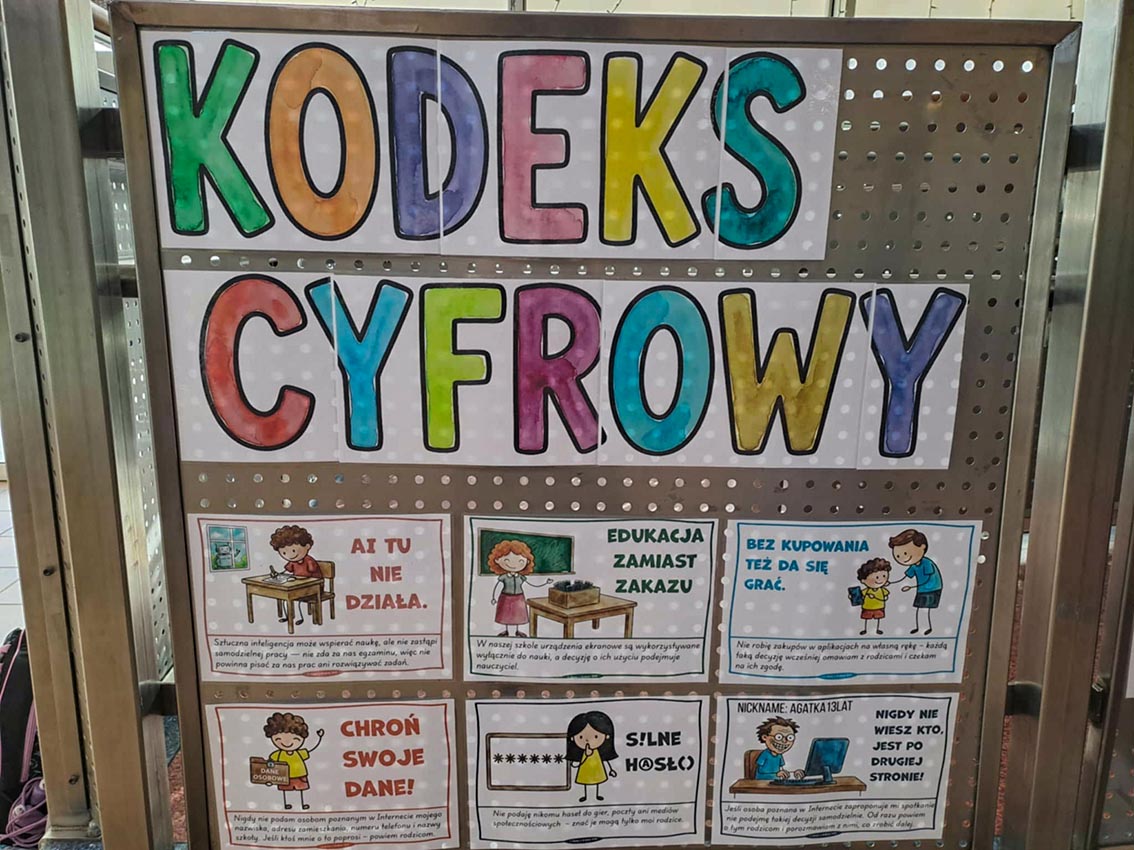 KODEKS
CYFROWY
AI TU
NIE
DZIAŁA.
Sztuczna inteligencja może wspierać naukę, ale nie zastąpi
samodzielnej pracy — nie zda za nas egzaminu, więc nie
powinna pisać za nas prac ani rozwiązywać zadań.
EDUKACJA
ZAMIAST
ZAKAZU
W naszej szkole urządzenia ekranowe są wykorzystywane
wyłącznie do nauki, a decyzję o ich użyciu podejmuje
nauczyciel.
BEZ KUPOWANIA
TEŻ DA SIĘ
GRAĆ.
Nie robię zakupów w aplikacjach na własną rękę – każdą
taką decyzję wcześniej omawiam z rodzicami i czekam
na ich zgodę.
DANE
OSOBOWE
CHROŃ
SWOJE
DANE!
Nigdy nie podam osobom poznanym w Internecie mojego
nazwiska, adresu zamieszkania, numeru telefonu i nazwy
szkoły. Jeśli ktoś mnie o to poprosi – powiem rodzicom.
******
S!LNE
H@SŁ()
Nie podaję nikomu haseł do gier, poczty ani mediów
społecznościowych – znać je mogą tylko moi rodzice.
NICKNAME: AGATKA13LAT
NIGDY NIE
WIESZ KTO,
JEST PO
DRUGIEJ
STRONIE!
Jeśli osoba poznana w Internecie zaproponuje mi spotkanie
nie podejmę takiej decyzji samodzielnie. Od razu powiem
o tym rodzicom i porozmawiam z nimi, co zrobić dalej.